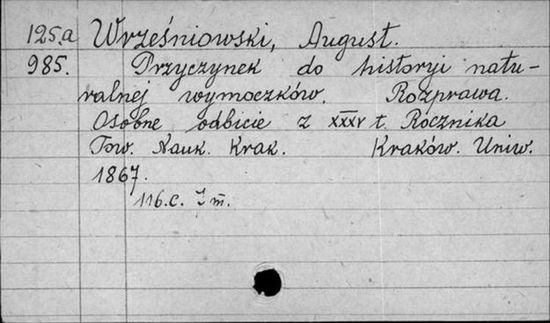 125.a Wrześniowski, August.
985. Przyczynek do historyi natu-
ralnej wymoczków. Rozprawa.
Osobne odbicie z XXXV t. Rocznika
Tow. Nauk. Krak. Kraków. Uniw.
1867.
116.c. III.